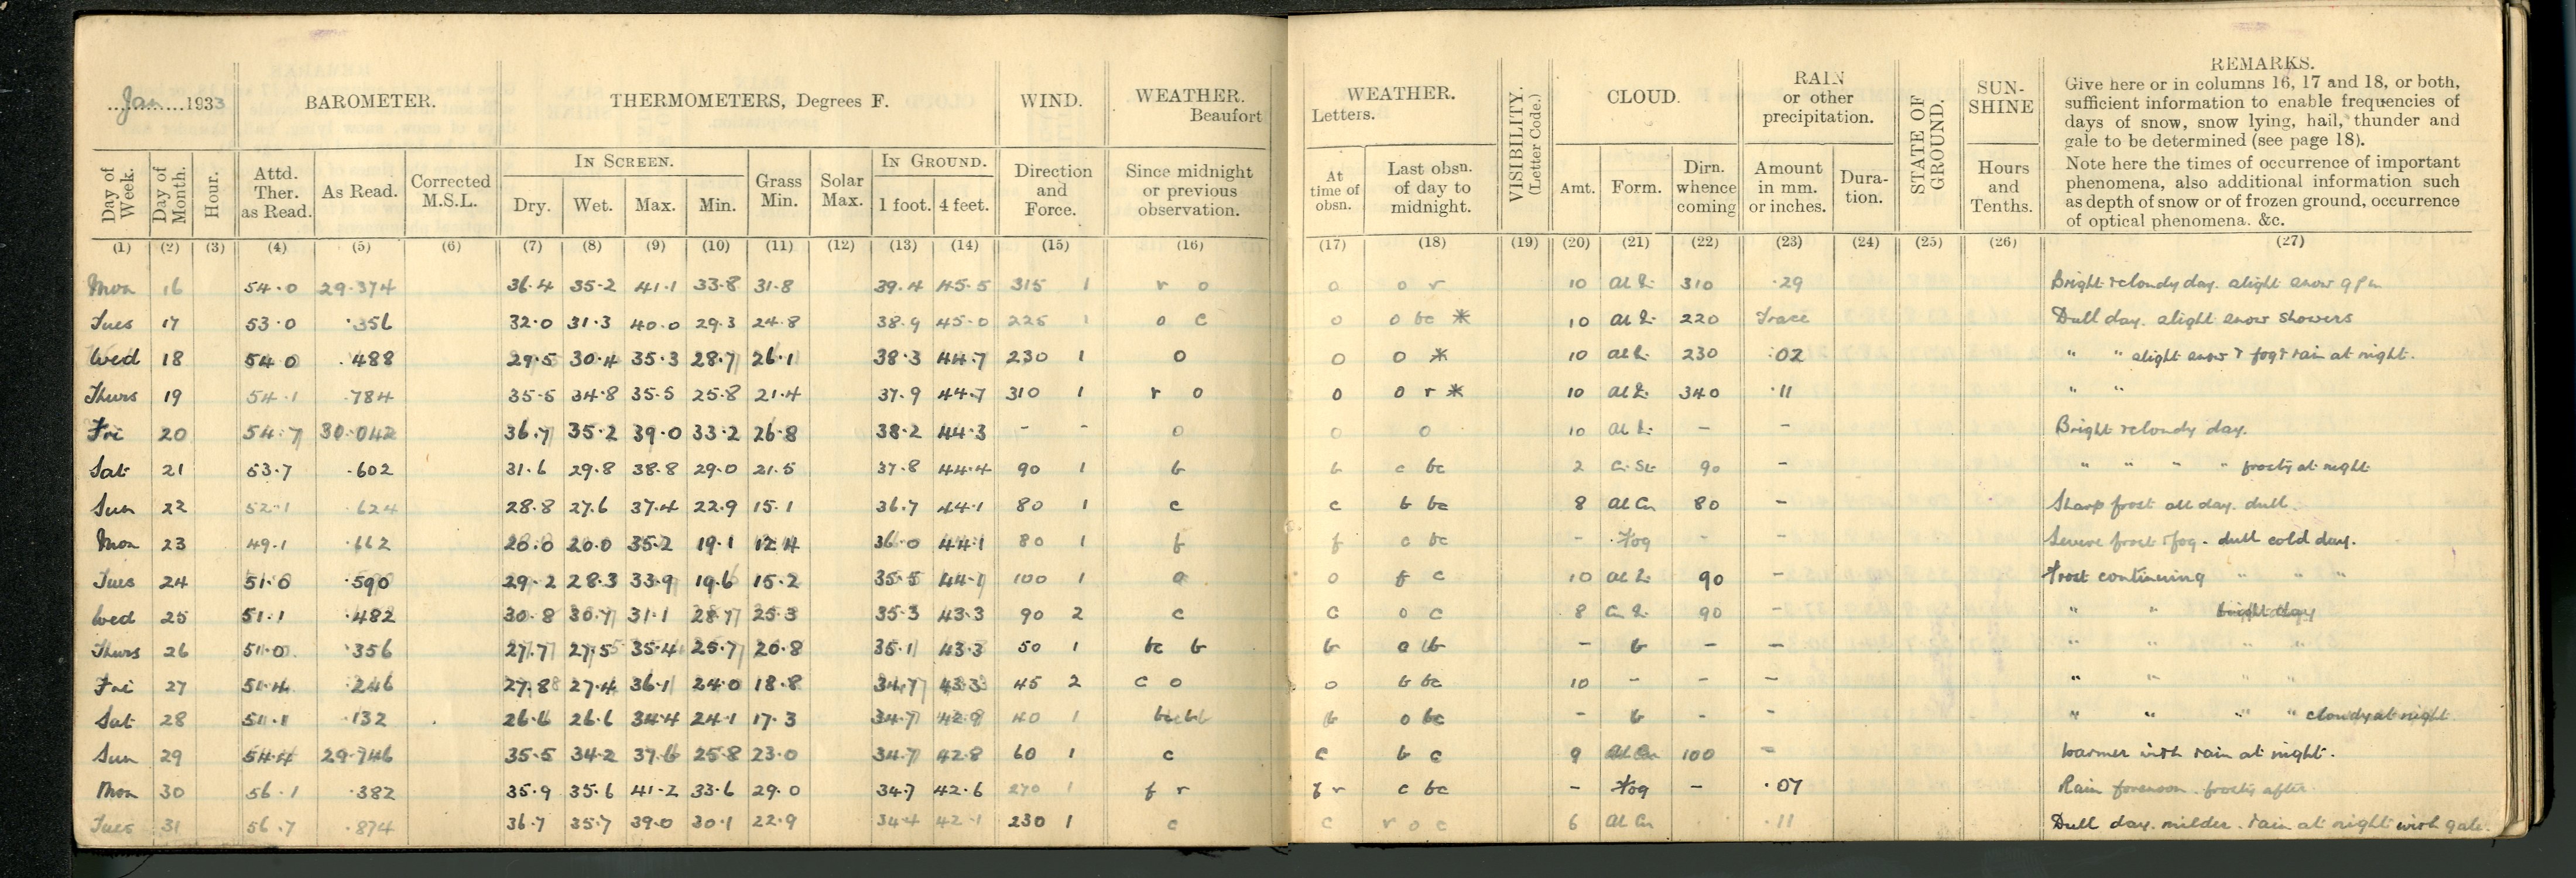 Jan 1933
BAROMETER.
THERMOMETERS, Degrees F.
WIND.
WEATHER.
Beaufort
WEATHER.
Letters.
VISIBILITY.
(Letter Code.)
CLOUD.
RAIN
or other
precipitation.
STATE OF
GROUND.
SUN-
SHINE
REMARKS.
Give here or in columns 16, 17 and 18, or both,
sufficient information to enable frequencies of
days of snow, snow lying, hail, thunder and
gale to be determined (see page 18).
Note here the times of occurrence of important
phenomena, also additional information such
as depth of snow or of frozen ground, occurrence
of optical phenomena. &c.
Day of
Week.
Day of
Month.
Hour.
Attd.
Ther.
as Read.
As Read.
Corrected
M.S.L.
IN SCREEN.
Dry. Wet. Max. Min.
Grass
Min.
Solar
Max.
IN GROUND.
1 foot. 4 feet.
Direction
and
Force.
Since midnight
or previous
observation.
At
time of
obsn.
Last obsn.
of day to
midnight.
Amt.
Form.
Dirn.
whence
coming
Amount
in mm.
or inches.
Dura-
tion.
Hours
and
Tenths.
(1) (2) (3) (4) (5) (6) (7) (8) (9) (10) (11) (12) (13) (14) (15) (16) (17) (18) (19) (20) (21) (22) (23) (24) (25) (26) (27)
Mon 16 54.0 29.374 36.4 35.2 41.1 33.8 31.8 39.4 45.5 315 1 r o o o r 10 310 .29 Bright & cloudy day. slight snow 9 pm
Tues 17 53.0 .356 32.0 31.3 40.0 29.3 24.8 38.9 45.0 225 1 o c o o bc * 10 220 Trace Dull day. slight snow showers
Wed 18 54.0 .488 29.5 30.4 35.3 28.7 26.1 38.3 44.7 230 1 o o o * 10 230 .02 " " slight snow & fog & rain at night.
Thurs 19 54.1 .784 35.5 34.8 35.5 25.8 21.4 37.9 44.7 310 1 r o o o r * 10 340 .11 " "
Fri 20 54.7 30.042 36.7 35.2 39.0 33.2 26.8 38.2 44.3 - - o o o 10 - - Bright & cloudy day.
Sat 21 53.7 .602 31.6 29.8 38.8 29.0 21.5 37.8 44.4 90 1 b b c bc 2 Ci. St. 90 - " " " " frosty at night
Sun 22 52.1 .624 28.8 27.6 37.4 22.9 15.1 36.7 44.1 80 1 c c b bc 8 Al Cu 80 - Sharp frost all day. dull.
Mon 23 49.1 .662 20.0 20.0 35.2 19.1 12.4 36.0 44.1 80 1 f f c bc - Fog - - Severe frost & fog. dull cold day.
Tues 24 51.0 .590 29.2 28.3 33.9 19.6 15.2 35.5 44.1 100 1 o o f c 10 90 - Frost continuing " " "
Wed 25 51.1 .482 30.8 30.7 31.1 28.7 25.3 35.3 43.3 90 2 c c o c 8 90 - " " bright day
Thurs 26 51.0 .356 27.7 27.5 35.4 25.7 20.8 35.1 43.3 50 1 bc b b c b - b - - " " " "
Fri 27 51.4 .246 27.8 27.4 36.1 24.0 18.8 34.7 43.3 45 2 c o o b bc 10 - - - " " " "
Sat 28 51.1 .132 26.6 26.6 34.4 24.1 17.3 34.7 42.8 40 1 b o bc - b - - " " " " cloudy at night.
Sun 29 54.4 29.746 35.5 34.2 37.6 25.8 23.0 34.7 42.8 60 1 c c b c 9 Al Cu 100 - Warmer with rain at night.
Mon 30 56.1 .382 35.9 35.6 41.2 33.6 29.0 34.7 42.6 270 1 f r f r c bc - Fog - .07 Rain forenoon. frosty after.
Tues 31 56.7 .874 36.7 35.7 39.0 30.1 22.9 34.4 42.1 230 1 c c r o c 6 Al Cu .11 Dull day. milder. rain at night with gale.